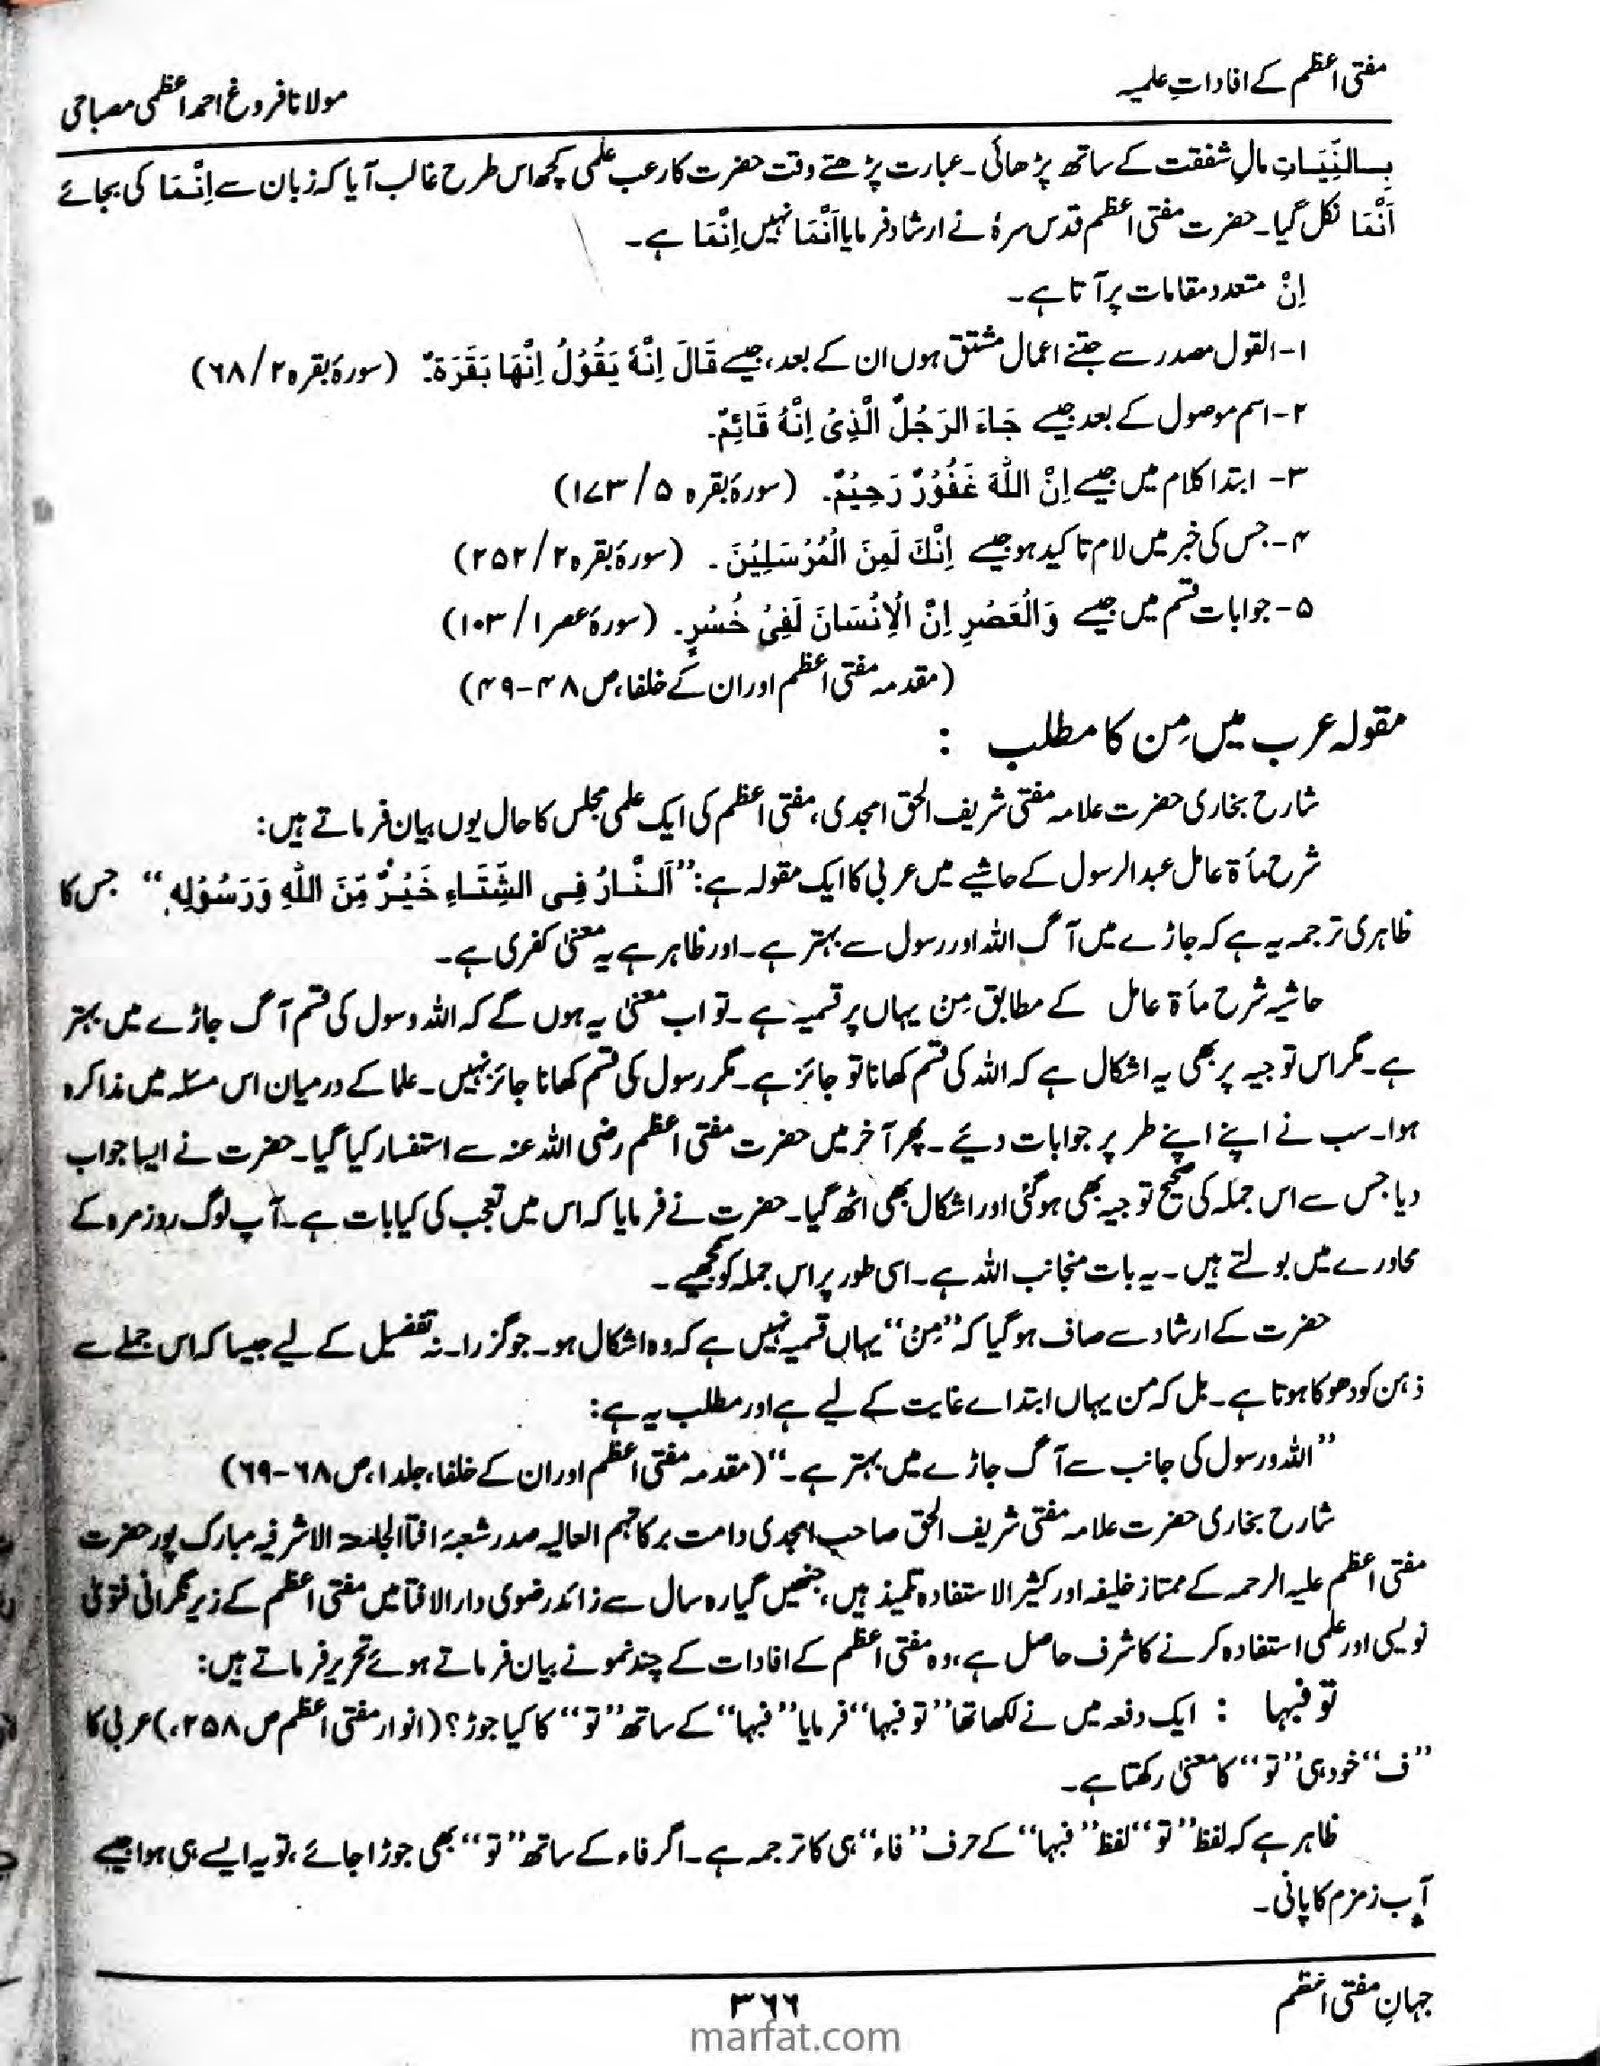 مفتی اعظم کے افاداتِ علمیہ
مولانا فروغ احمد اعظمی مصباحی
بِالنِّیَاتِ مالِ شفقت کے ساتھ پڑھائی۔ عبارت پڑھتے وقت حضرت کا رعب علمی کچھ اس طرح غالب آیا کہ زبان سے اِنَّمَا کی بجائے
اَنَّمَا نکل گیا۔ حضرت مفتی اعظم قدس سرہٗ نے ارشاد فرمایا اَنَّمَا نہیں اِنَّمَا ہے۔
اِنَّ متعدد مقامات پر آتا ہے۔
۱- القول مصدر سے جتنے اعمال مشتق ہوں ان کے بعد، جیسے قَالَ اِنَّہٗ یَقُوْلُ اِنَّھَا بَقَرَۃٌ۔ (سورۂ بقرہ ۲/۶۸)
۲- اسم موصول کے بعد جیسے جَاءَ الرَجُلُ الَّذِیْ اِنَّہٗ قَائِمٌ۔
۳- ابتدا کلام میں جیسے اِنَّ اللّٰہَ غَفُوْرٌ رَحِیْمٌ۔ (سورۂ بقرہ ۵/۱۷۳)
۴- جس کی خبر میں لام تاکید ہو جیسے اِنَّکَ لَمِنَ الْمُرْسَلِیْنَ۔ (سورۂ بقرہ ۲/۲۵۲)
۵- جوابات قسم میں جیسے وَالْعَصْرِ اِنَّ الْاِنْسَانَ لَفِیْ خُسْرٍ۔ (سورۂ عصر ۱/۱۰۳)
(مقدمہ مفتی اعظم اور ان کے خلفا، ص ۴۸-۴۹)
مقولہ عرب میں مِن کا مطلب :
شارح بخاری حضرت علامہ مفتی شریف الحق امجدی، مفتی اعظم کی ایک علمی مجلس کا حال یوں بیان فرماتے ہیں:
شرح مأۃ عامل عبدالرسول کے حاشیے میں عربی کا ایک مقولہ ہے: ”اَلنَّارُ فِی الشِّتَاءِ خَیْرٌ مِّنَ اللّٰہِ وَرَسُوْلِہٖ“ جس کا
ظاہری ترجمہ یہ ہے کہ جاڑے میں آگ اللہ اور رسول سے بہتر ہے۔ اور ظاہر ہے یہ معنیٰ کفری ہے۔
حاشیہ شرح مأۃ عامل کے مطابق مِنْ یہاں پر قسمیہ ہے۔ تو اب معنیٰ یہ ہوں گے کہ اللہ و رسول کی قسم آگ جاڑے میں بہتر
ہے۔ مگر اس توجیہ پر بھی یہ اشکال ہے کہ اللہ کی قسم کھانا تو جائز ہے۔ مگر رسول کی قسم کھانا جائز نہیں۔ علما کے درمیان اس مسئلہ میں مذاکرہ
ہوا۔ سب نے اپنے اپنے طر پر جوابات دیئے۔ پھر آخر میں حضرت مفتی اعظم رضی اللہ عنہ سے استفسار کیا گیا۔ حضرت نے ایسا جواب
دیا جس سے اس جملہ کی صحیح توجیہ بھی ہوگئی اور اشکال بھی اٹھ گیا۔ حضرت نے فرمایا کہ اس میں تعجب کی کیا بات ہے۔ آپ لوگ روزمرہ کے
محاورے میں بولتے ہیں۔ یہ بات منجانب اللہ ہے۔ اسی طور پر اس جملہ کو سمجھیے۔
حضرت کے ارشاد سے صاف ہوگیا کہ ”مِنْ“ یہاں قسمیہ نہیں ہے کہ وہ اشکال ہو۔ جو گزرا۔ نہ تفضیل کے لیے جیسا کہ اس جملے سے
ذہن کو دھوکا ہوتا ہے۔ بل کہ من یہاں ابتداے غایت کے لیے ہے اور مطلب یہ ہے:
”اللہ و رسول کی جانب سے آگ جاڑے میں بہتر ہے۔“ (مقدمہ مفتی اعظم اور ان کے خلفا، جلد ۱، ص ۶۸-۶۹)
شارح بخاری حضرت علامہ مفتی شریف الحق صاحب امجدی دامت برکاتہم العالیہ صدر شعبۂ افتا الجامعۃ الاشرفیہ مبارک پور حضرت
مفتی اعظم علیہ الرحمہ کے ممتاز خلیفہ اور کثیر الاستفادہ تلمیذ ہیں، جنھیں گیارہ سال سے زائد رضوی دارالافتا میں مفتی اعظم کے زیر نگرانی فتویٰ
نویسی اور علمی استفادہ کرنے کا شرف حاصل ہے، وہ مفتی اعظم کے افادات کے چند نمونے بیان فرماتے ہوئے تحریر فرماتے ہیں:
تو فبہا : ایک دفعہ میں نے لکھا تھا ”تو فبہا“ فرمایا ”فبہا“ کے ساتھ ”تو“ کا کیا جوڑ؟ (انوار مفتی اعظم ص ۲۵۸،) عربی کا
”ف“ خود ہی ”تو“ کا معنیٰ رکھتا ہے۔
ظاہر ہے کہ لفظ ”تو“ لفظ ”فبہا“ کے حرف ”فاء“ ہی کا ترجمہ ہے۔ اگر فاء کے ساتھ ”تو“ بھی جوڑا جائے، تو یہ ایسے ہی ہوا جیسے
آبِ زمزم کا پانی۔
جہانِ مفتی اعظم
۳۶۶
marfat.com